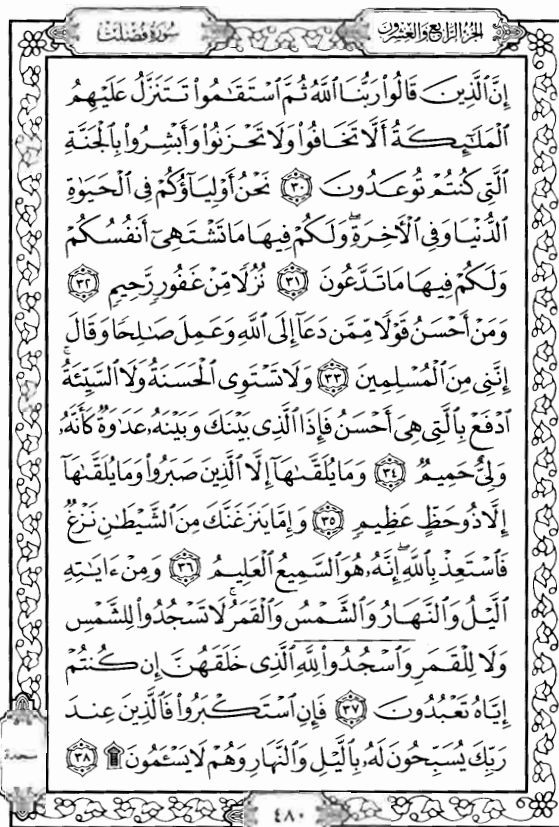 الجزء الرابع والعشرون
سورة فصلت
إِنَّ ٱلَّذِينَ قَالُوا۟ رَبُّنَا ٱللَّهُ ثُمَّ ٱسْتَقَٰمُوا۟ تَتَنَزَّلُ عَلَيْهِمُ
ٱلْمَلَٰٓئِكَةُ أَلَّا تَخَافُوا۟ وَلَا تَحْزَنُوا۟ وَأَبْشِرُوا۟ بِٱلْجَنَّةِ
ٱلَّتِى كُنتُمْ تُوعَدُونَ ٣٠ نَحْنُ أَوْلِيَآؤُكُمْ فِى ٱلْحَيَوٰةِ
ٱلدُّنْيَا وَفِى ٱلْءَاخِرَةِ ۖ وَلَكُمْ فِيهَا مَا تَشْتَهِىٓ أَنفُسُكُمْ
وَلَكُمْ فِيهَا مَا تَدَّعُونَ ٣١ نُزُلًا مِّنْ غَفُورٍ رَّحِيمٍ ٣٢
وَمَنْ أَحْسَنُ قَوْلًا مِّمَّن دَعَآ إِلَى ٱللَّهِ وَعَمِلَ صَٰلِحًا وَقَالَ
إِنَّنِى مِنَ ٱلْمُسْلِمِينَ ٣٣ وَلَا تَسْتَوِى ٱلْحَسَنَةُ وَلَا ٱلسَّيِّئَةُ ۚ
ٱدْفَعْ بِٱلَّتِى هِىَ أَحْسَنُ فَإِذَا ٱلَّذِى بَيْنَكَ وَبَيْنَهُۥ عَدَٰوَةٌ كَأَنَّهُۥ
وَلِىٌّ حَمِيمٌ ٣٤ وَمَا يُلَقَّىٰهَآ إِلَّا ٱلَّذِينَ صَبَرُوا۟ وَمَا يُلَقَّىٰهَآ
إِلَّا ذُو حَظٍّ عَظِيمٍ ٣٥ وَإِمَّا يَنزَغَنَّكَ مِنَ ٱلشَّيْطَٰنِ نَزْغٌ
فَٱسْتَعِذْ بِٱللَّهِ ۖ إِنَّهُۥ هُوَ ٱلسَّمِيعُ ٱلْعَلِيمُ ٣٦ وَمِنْ ءَايَٰتِهِ
ٱلَّيْلُ وَٱلنَّهَارُ وَٱلشَّمْسُ وَٱلْقَمَرُ ۚ لَا تَسْجُدُوا۟ لِلشَّمْسِ
وَلَا لِلْقَمَرِ وَٱسْجُدُوا۟ لِلَّهِ ٱلَّذِى خَلَقَهُنَّ إِن كُنتُمْ
إِيَّاهُ تَعْبُدُونَ ٣٧ فَإِنِ ٱسْتَكْبَرُوا۟ فَٱلَّذِينَ عِندَ
رَبِّكَ يُسَبِّحُونَ لَهُۥ بِٱلَّيْلِ وَٱلنَّهَارِ وَهُمْ لَا يَسْـَٔمُونَ ۩ ٣٨
سجدة
٤٨٠